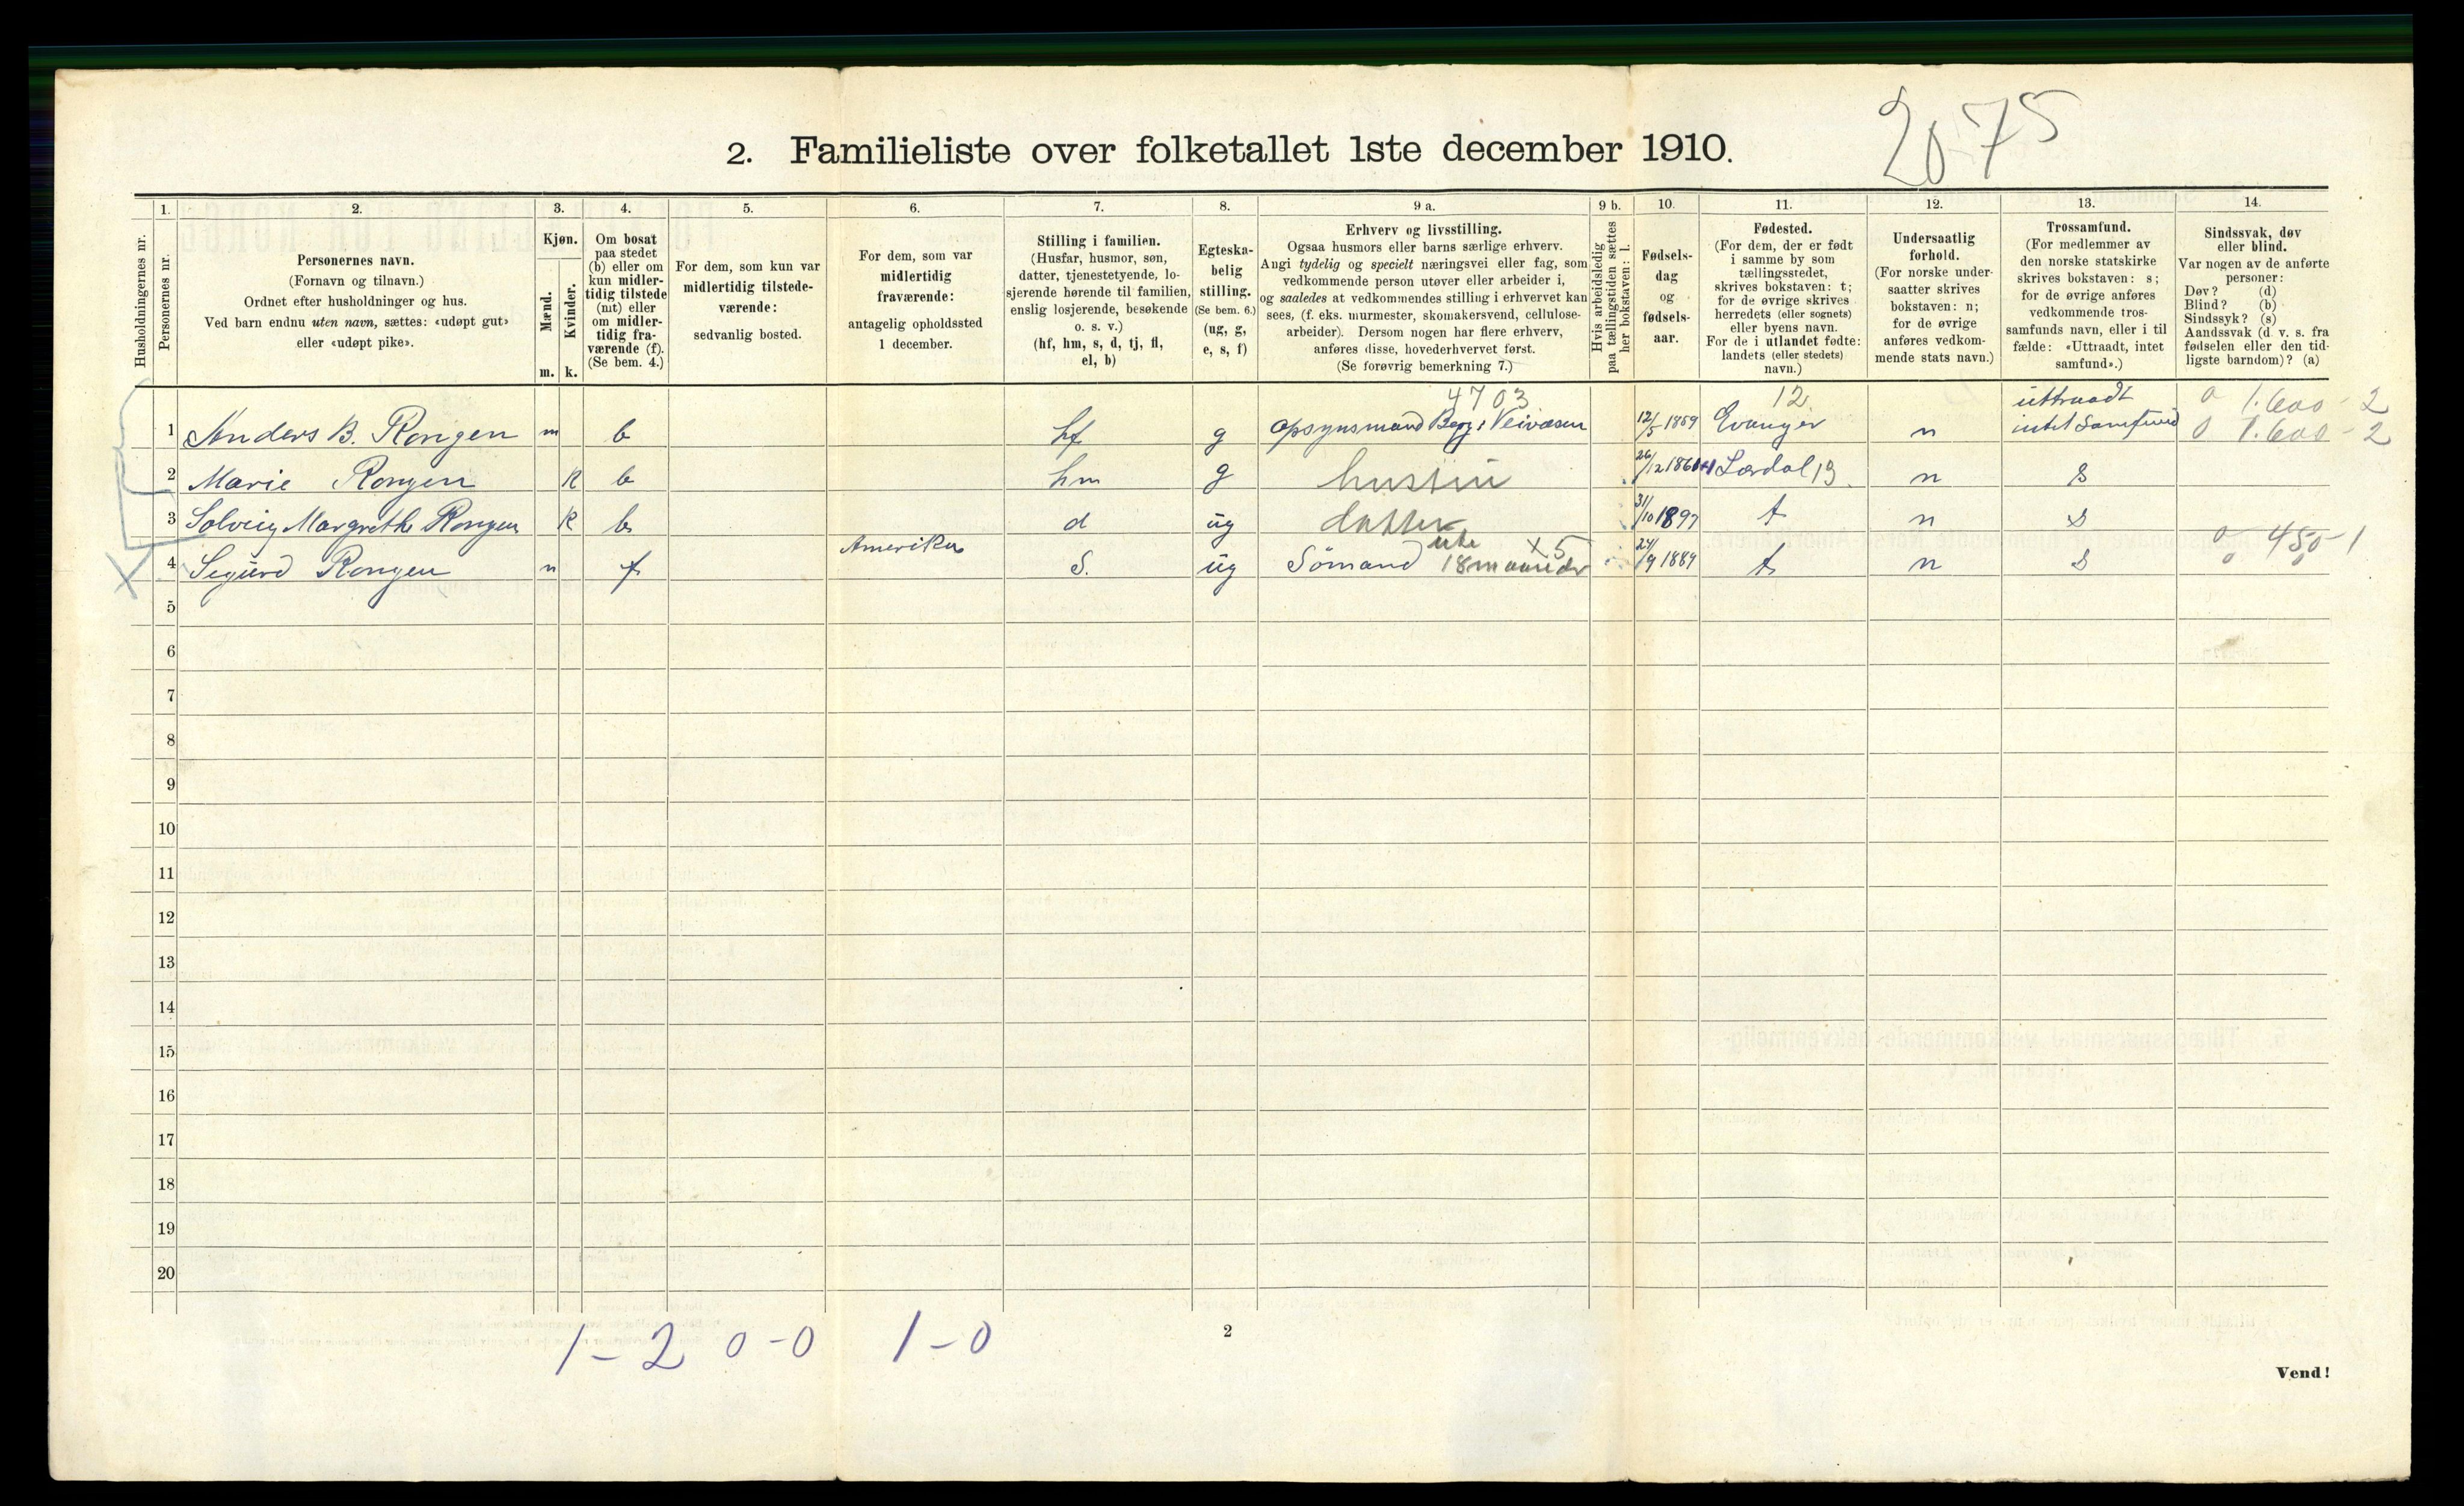 2075
2. Familieliste over folketallet 1ste december 1910.
Husholdningernes nr.
1.
Personernes nr.
2.
Personernes navn.
(Fornavn og tilnavn.)
Ordnet efter husholdninger og hus.
Ved barn endnu uten navn, sættes: «udøpt gut»
eller «udøpt pike».
3.
Kjøn.
Mænd.
Kvinder.
m. k.
4.
Om bosat
paa stedet
(b) eller om
kun midler-
tidig tilstede
(mt) eller
om midler-
tidig fra-
værende (f).
(Se bem. 4.)
5.
For dem, som kun var
midlertidig tilstede-
værende:
sedvanlig bosted.
6.
For dem, som var
midlertidig
fraværende:
antagelig opholdssted
1 december.
7.
Stilling i familien.
(Husfar, husmor, søn,
datter, tjenestetyende, lo-
sjerende hørende til familien,
enslig losjerende, besøkende
o. s. v.)
(hf, hm, s, d, tj, fl,
el, b)
8.
Egteska-
belig
stilling.
(Se bem. 6.)
(ug, g,
e, s, f)
9 a.
Erhverv og livsstilling.
Ogsaa husmors eller barns særlige erhverv.
Angi tydelig og specielt næringsvei eller fag, som
vedkommende person utøver eller arbeider i,
og saaledes at vedkommendes stilling i erhvervet kan
sees, (f. eks. murmester, skomakersvend, cellulose-
arbeider). Dersom nogen har flere erhverv,
anføres disse, hovederhvervet først.
(Se forøvrig bemerkning 7.)
9 b.
Hvis arbeidsledig
paa tællingstiden sættes
her bokstaven: l.
10.
Fødsels-
dag
og
fødsels-
aar.
11.
Fødested.
(For dem, der er født
i samme by som
tællingsstedet,
skrives bokstaven: t;
for de øvrige skrives
herredets (eller sognets)
eller byens navn.
For de i utlandet fødte:
landets (eller stedets)
navn.)
12.
Undersaatlig
forhold.
(For norske under-
saatter skrives
bokstaven: n;
for de øvrige
anføres vedkom-
mende stats navn.)
13.
Trossamfund.
(For medlemmer av
den norske statskirke
skrives bokstaven: s;
for de øvrige anføres
vedkommende tros-
samfunds navn, eller i til
fælde: «Uttraadt, intet
samfund».)
14.
Sindssvak, døv
eller blind.
Var nogen av de anførte
personer:
Døv? (d)
Blind? (b)
Sindssyk? (s)
Aandssvak (d. v. s. fra
fødselen eller den tid-
ligste barndom)? (a)
4703 12. uttraadt 0 1.600 - 2
1 Anders B. Rongen m b hf g Opsynsmand Berg. Veivæsen 12/5 1859 Evanger n intet Samfund 0 1.600 - 2
2 Marie Rongen k b hm g hustru 26/12 1861 Lærdal 13 n s
3 Solveig Margrethe Rongen k b d ug datter 31/10 1897 t n s
Amerika ute x5 0 450 - 1
4 Sigurd Rongen m f s. ug Sömand 18 maaneder 24/9 1889 t n s 0 0
5
6
7
8
9
10
11
12
13
14
15
16
17
18
19
20
1 - 2 0 - 0 1 - 0
2
Vend!